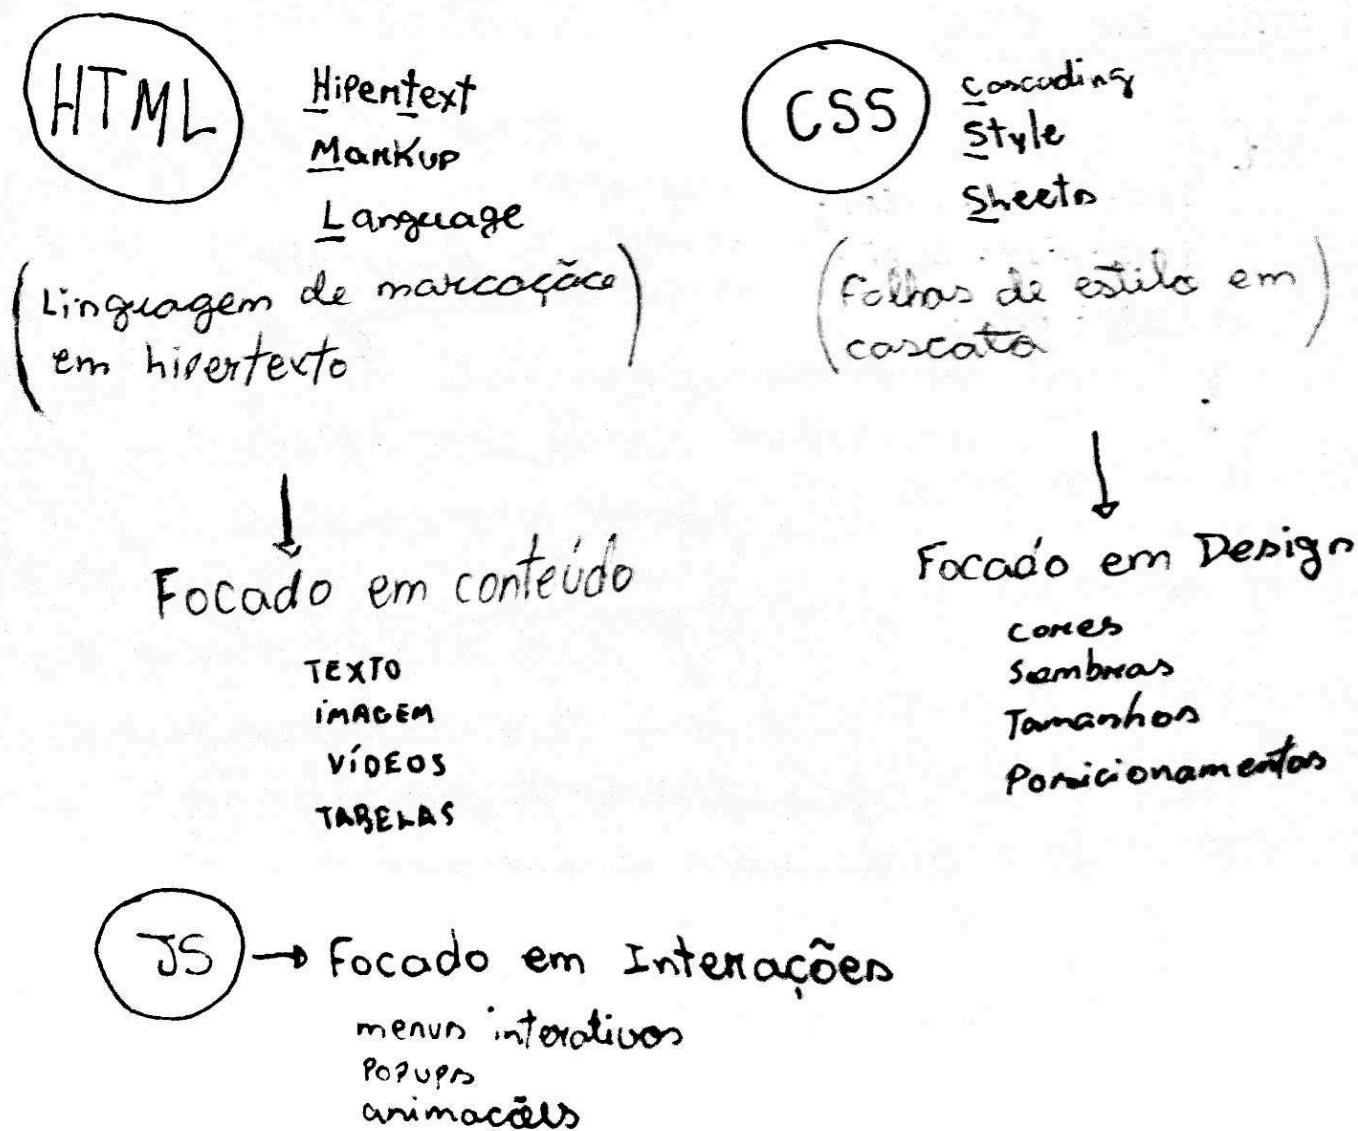 HTML
Hipertext
Markup
Language
(Linguagem de marcação
em hipertexto)
Focado em conteúdo
TEXTO
IMAGEM
VÍDEOS
TABELAS
CSS
Cascading
Style
Sheets
(Folhas de estilo em
cascata)
Focado em Design
cores
Sombras
Tamanhos
Posicionamentos
JS → Focado em Interações
menus interativos
Popups
animacões